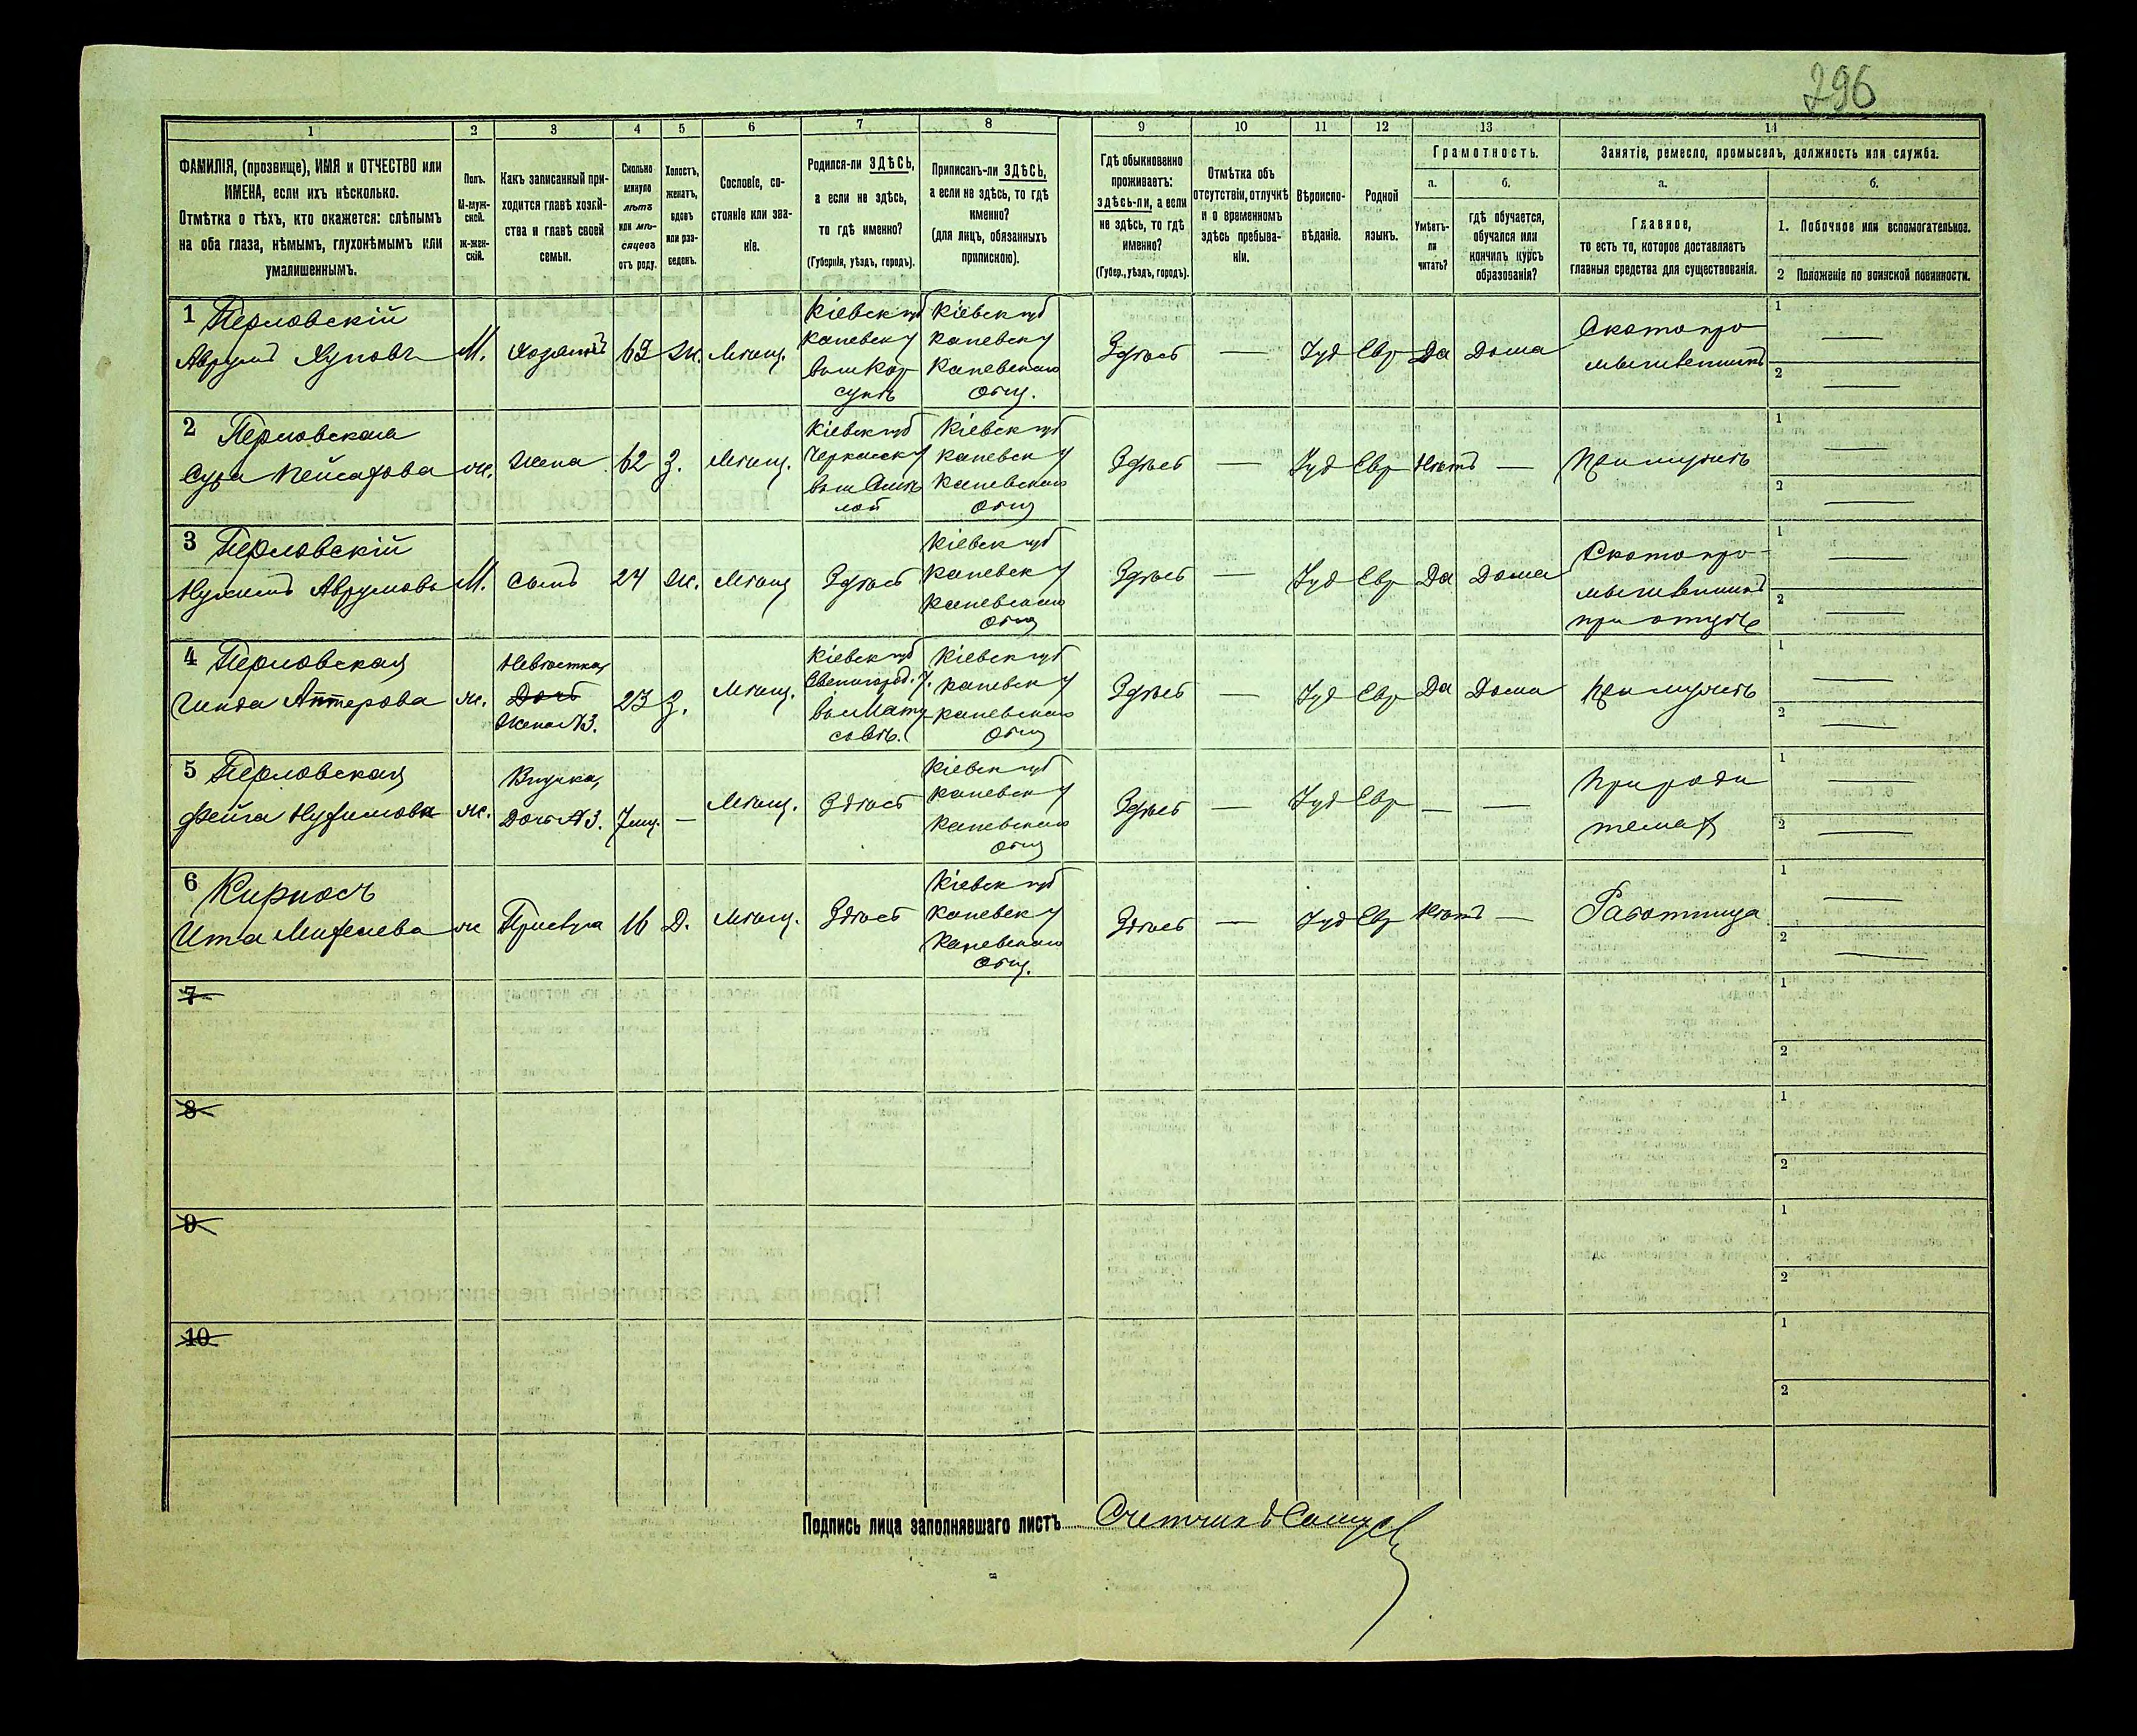 296
1 2 3 4 5 6 7 8 9 10 11 12 13 14
ФАМИЛІЯ, (прозвище), ИМЯ и ОТЧЕСТВО или
ИМЕНА, если ихъ нѣсколько.
Отмѣтка о тѣхъ, кто окажется: слѣпымъ
на оба глаза, нѣмымъ, глухонѣмымъ или
умалишеннымъ.
Полъ.
М-муж-
ской.
ж-жен-
скій.
Какъ записанный при-
ходится главѣ хозяй-
ства и главѣ своей
семьи.
Сколько
минуло
лѣтъ
или мѣ-
сяцевъ
отъ роду.
Холостъ,
женатъ,
вдовъ
или раз-
веденъ.
Сословіе, со-
стояніе или зва-
ніе.
Родился-ли ЗДѢСЬ,
а если не здѣсь,
то гдѣ именно?
(Губернія, уѣздъ, городъ).
Приписанъ-ли ЗДѢСЬ,
а если не здѣсь, то гдѣ
именно?
(для лицъ, обязанныхъ
припискою).
Гдѣ обыкновенно
проживаетъ:
здѣсь-ли, а если
не здѣсь, то гдѣ
именно?
(Губер., уѣздъ, городъ).
Отмѣтка объ
отсутствіи, отлучкѣ
и о временномъ
здѣсь пребыва-
ніи.
Вѣроиспо-
вѣданіе.
Родной
языкъ.
Грамотность.
а.
Умѣетъ-
ли
читать?
б.
гдѣ обучается,
обучался или
кончилъ курсъ
образованія?
Занятіе, ремесло, промыселъ, должность или служба.
а.
Главное,
то есть то, которое доставляетъ
главныя средства для существованія.
б.
1. Побочное или вспомогательное.
2 Положеніе по воинской повинности.
1 Перловскій
Аврумъ М. Хозяинъ 63 Ж. Мѣщ.
Кіевск губ
Каневск у
вым Кор
сунь
Кіевск губ
Каневск у
Каневскаго
общ.
Здѣсь — Іуд Евр Да Дома
Скотопро
мышленникъ
1 —
2 —
2 Перловская
Сура Пейсахова ж. Жена 62 З. Мѣщ.
Кіевск губ
Черкасск у
Кіевск губ
Каневск у
Каневскаго
общ
Здѣсь — Іуд Евр Нѣтъ — При мужѣ
1 —
2 —
3 Перловскій
Нухимъ Аврумовъ М. Сынъ 24 Ж. Мѣщ Здѣсь
Кіевск губ
Каневск у
Каневскаго
общ
Здѣсь — Іуд Евр Да Дома
Скотопро-
мышленникъ
при отцѣ
1 —
2 —
4 Перловская
Гинда Аптерова ж.
Невѣстка,
Дочь
Жена №3.
23 З. Мѣщ.
Кіевск губ
Звенигород. у.
Кіевск губ
Каневск у
Каневскаго
общ
Здѣсь — Іуд Евр Да Дома При мужѣ
1 —
2 —
5 Перловская
Фейга Нухимова ж.
Внучка,
Дочь №3.
7 мщ. — Мѣщ. Здѣсь
Кіевск губ
Каневск у
Каневскаго
общ
Здѣсь — Іуд Евр — —
При роди
теляхъ
1 —
2 —
6 Кирпосъ
Ита ж Прислуга 16 Д. Мѣщ. Здѣсь
Кіевск губ
Каневск у
Каневскаго
общ.
Здѣсь — Іуд Евр Нѣтъ — Работница
1 —
2 —
7
1
2
8
1
2
9
1
2
10
1
2
Подпись лица заполнявшаго листъ Счетчикъ